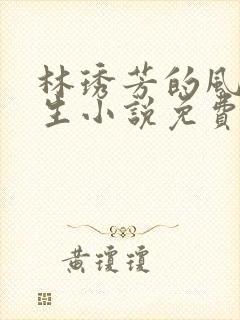 林琇芳的風
生小說免費
黃瓊瓊